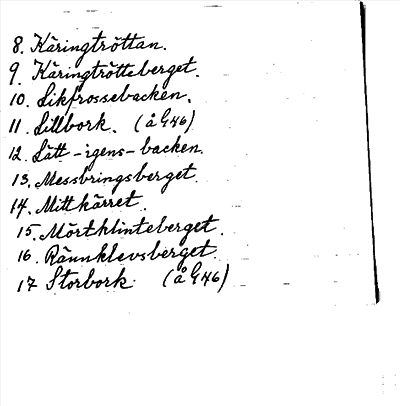 8. Käringtröttan.
9. Käringtrötteberget.
10. Likfrossebacken.
11. Lillbork. (å G46)
12. Lätt-igens-backen.
13. Messbringsberget.
14. Mittkärret.
15. Mörtklinteberget.
16. Rännklevsberget.
17 Storbork. (å G46)